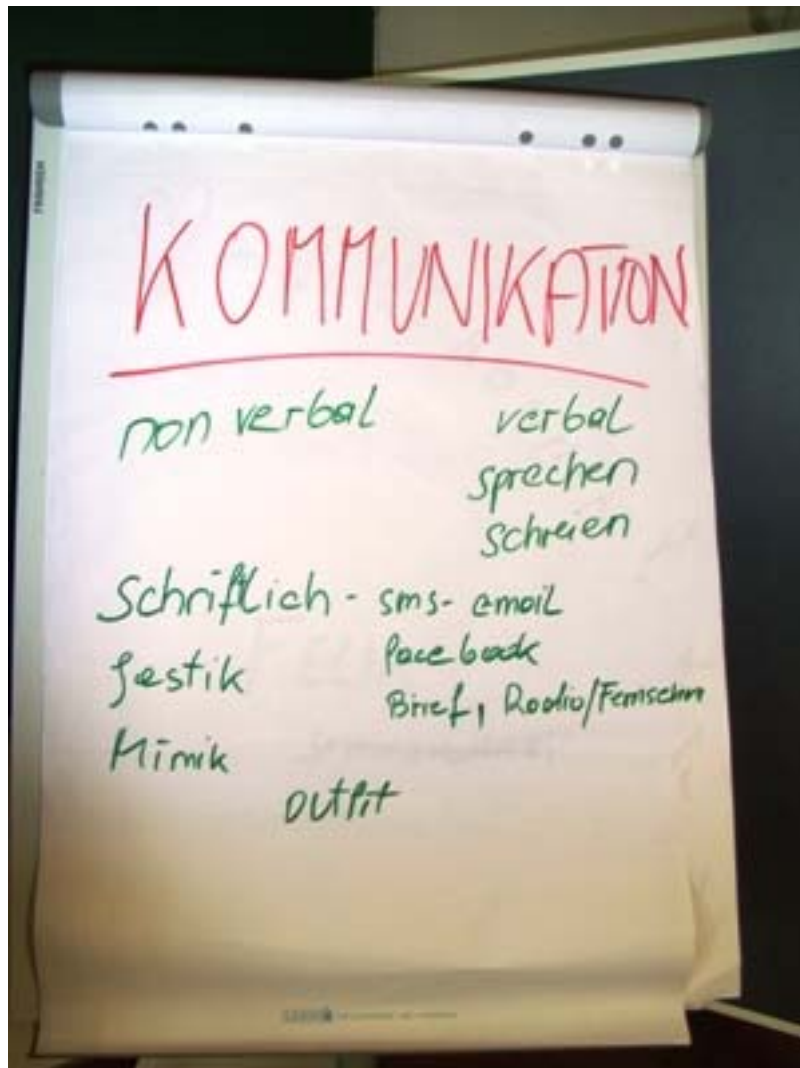 KOMMUNIKATION
non verbal
verbal
sprechen
schreien
Schriftlich - sms - email
facebook
Gestik
Brief, Radio/Fernsehen
Mimik
outfit